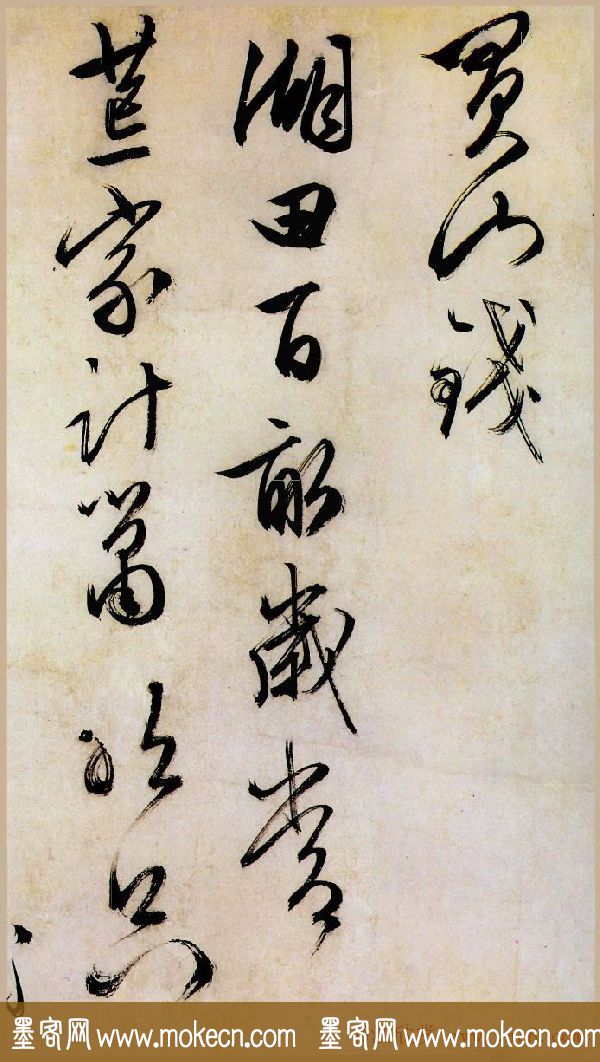 買山錢
湖田百畝歲常
荒家計蕭只
墨客网 www.mokecn.com 墨客网 www.mokecn.com